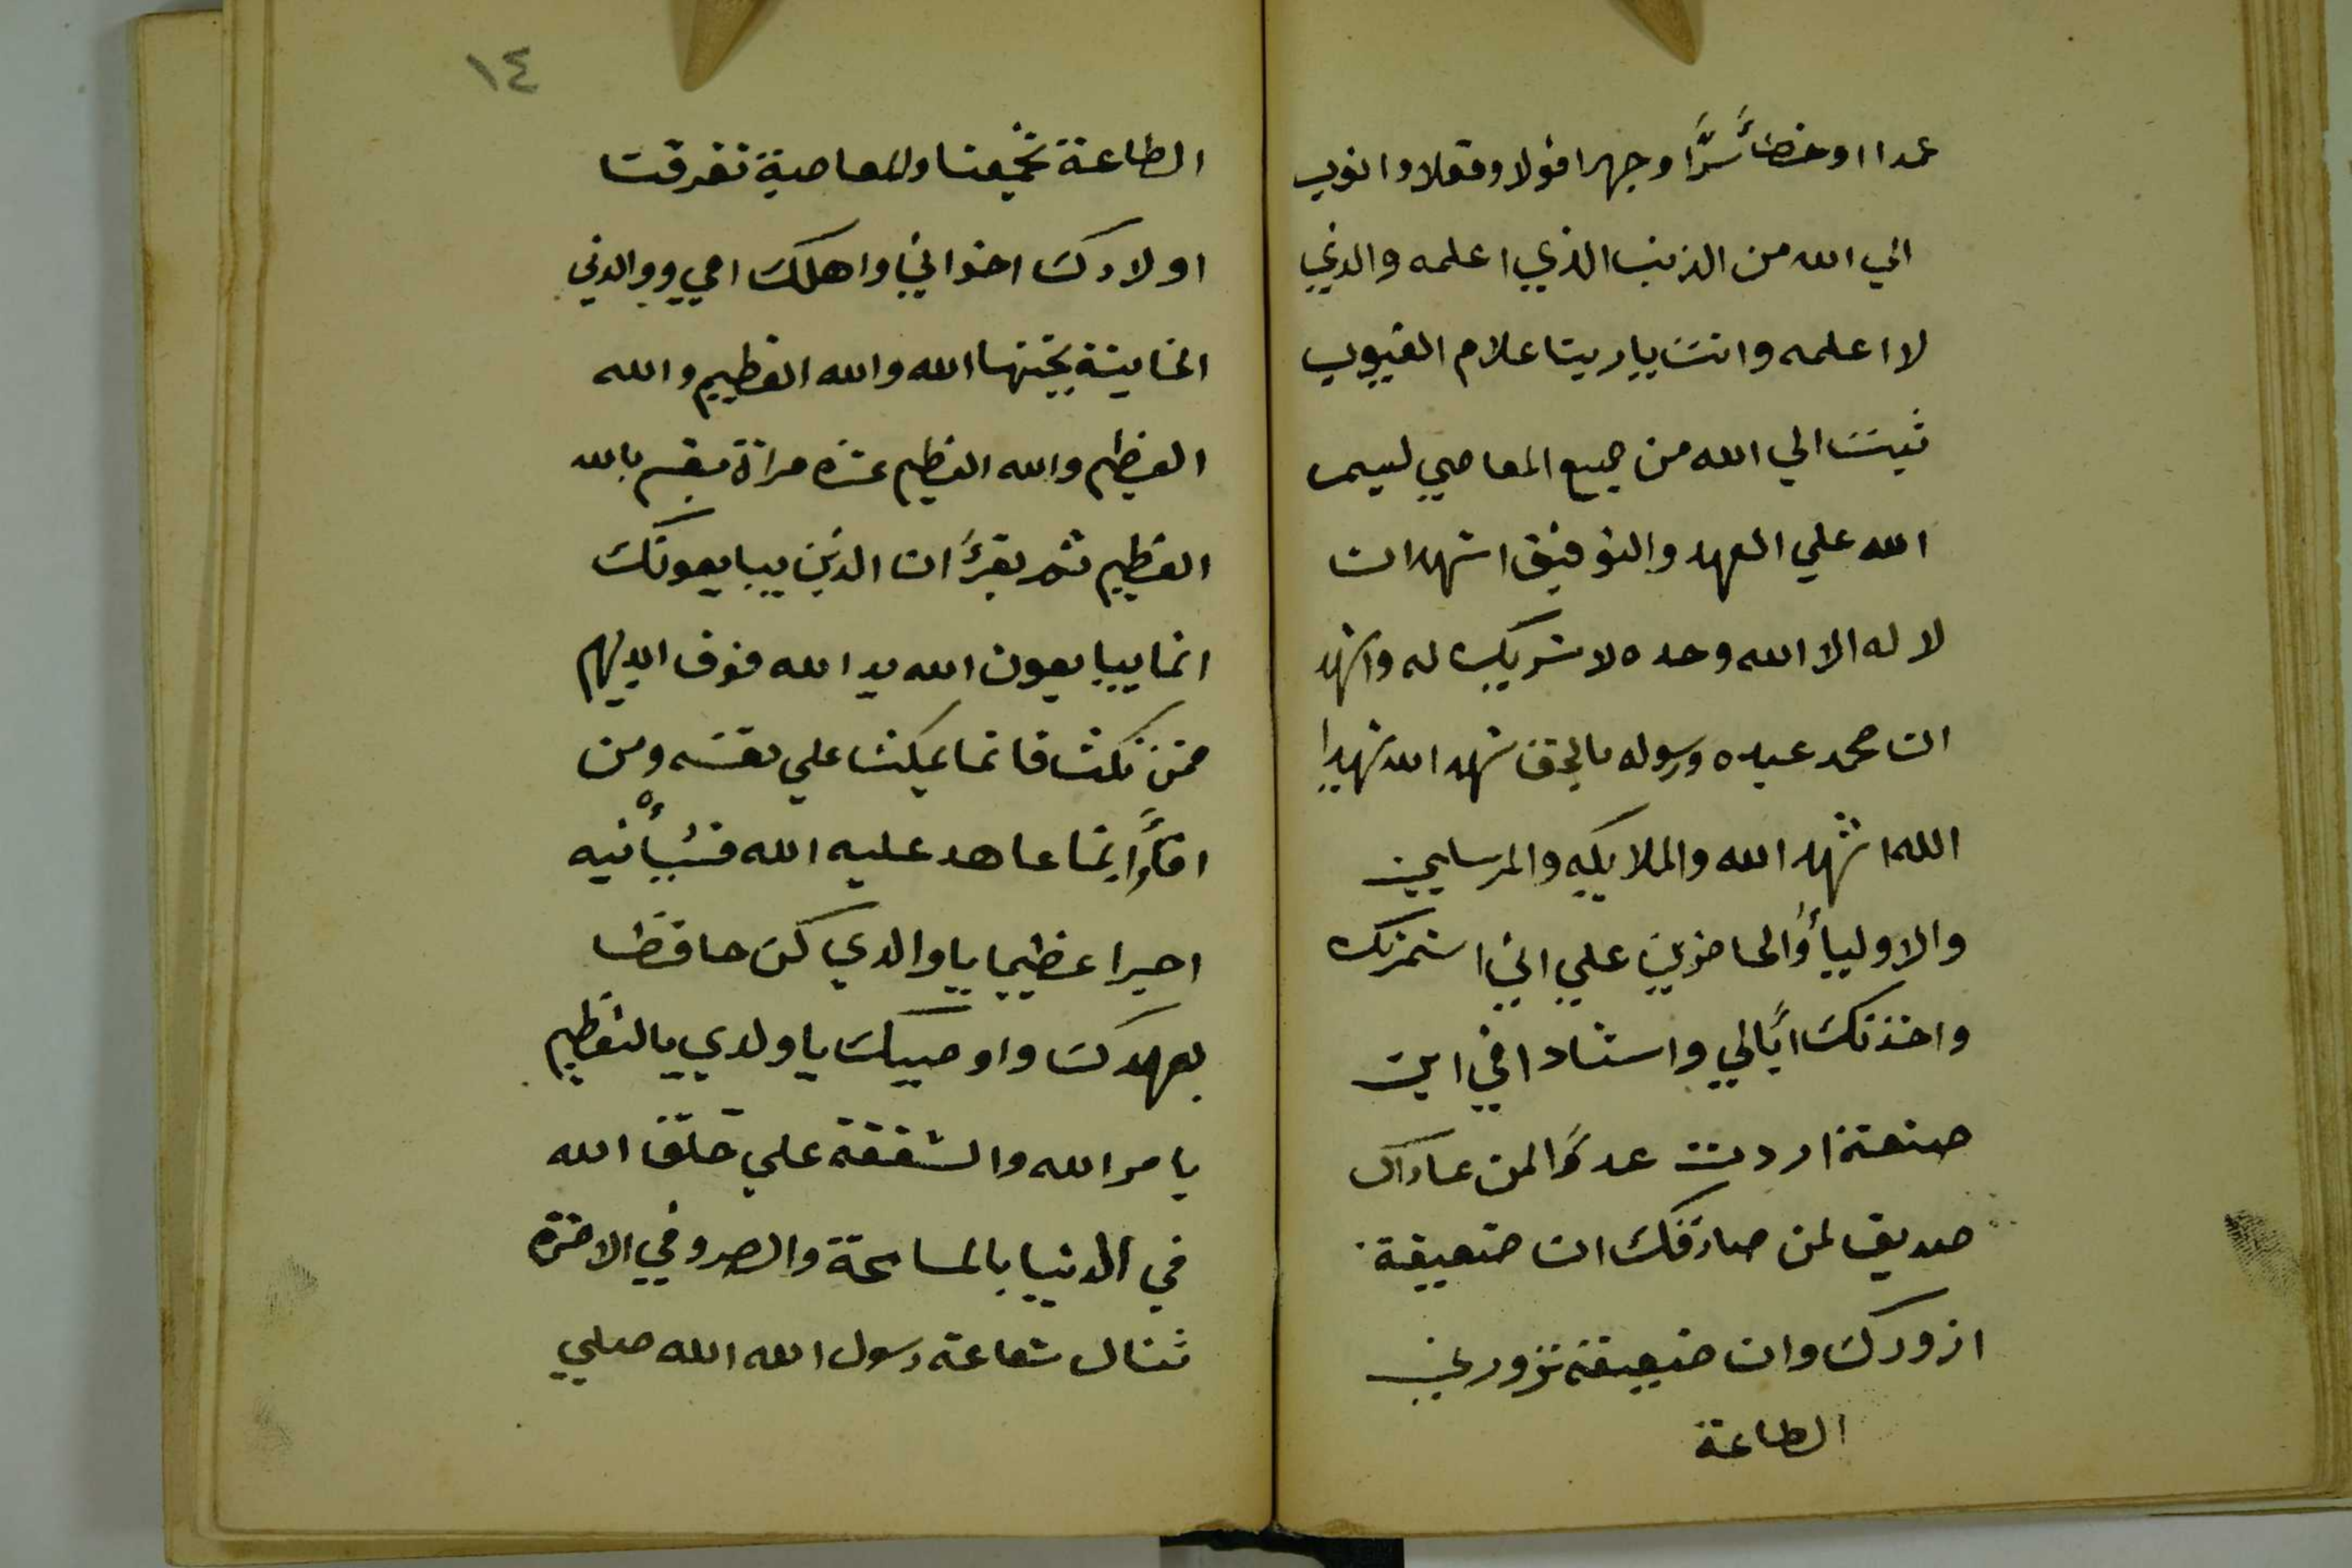 عمدا او خطأ سرًّا وجهرا قولا وفعلا واتوب
الي الله من الذنب الذي اعلمه والذي
لا اعلمه وانت ياربنا علام الغيوب
تبت الي الله من جميع المعاصي ليسمـ
الله علي العهد والتوفيق اشهد ان
لا له الا الله وحده لا شريك له واشهد
ان محمد عبده ورسوله بالحق شهد الله شهدا
الله اشهد الله والملايكه والمرسلين
والاوليأ والحاضرين علي اني
واخذتك ابًالي واستادا في اين
صنعة اردت عدوًا لمن عاداك
صديق لمن صادقك ان ضعيفة
ازورك وان ضعيفة تزورني
الطاعة
١٤
الطاعة تجمعنا والمعاصية تفرقنا
اولادك اخواني واهلك امي ووالدني
الخاينة يخنها الله والله العظيم والله
العظيم والله العظيم عشره مراة يقسم بالله
العظيم ثم يقرأ ان الذين يبايعونك
انما يبايعون الله يد الله فوق ايديهم
فمن نكث فانما ينكث علي نفسه ومن
اوفأ بما عاهد عليه الله فسيأتيه
اجرا عظيما يا والدي كن حافظا
بعهدك واوصيك يا ولدي بالتعظيم
يامر الله والشفقة علي خلق الله
في الدنيا بالمسامحة والصر وفي الاخره
تنال شفاعة رسول الله الله صلي